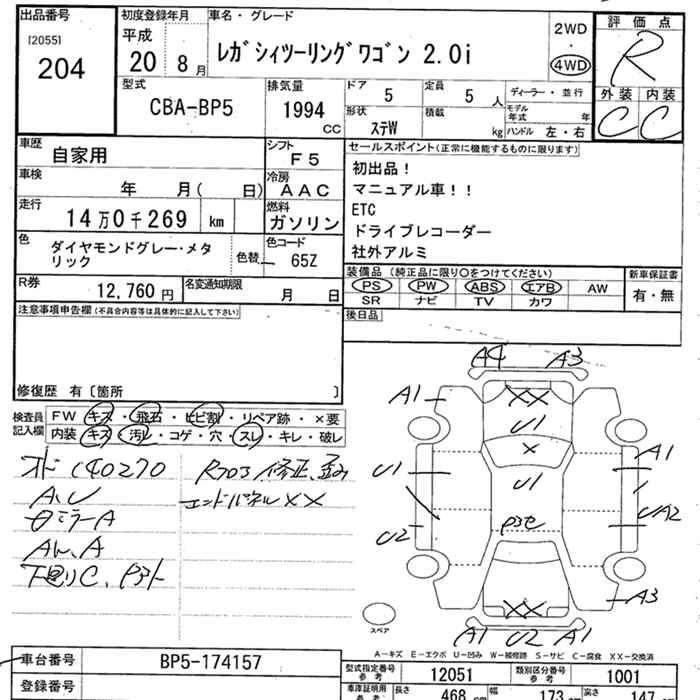 出品番号
[2055]
204
初度登録年月
平成
20 8月
車名・グレード
ﾚｶﾞｼｨﾂｰﾘﾝｸﾞﾜｺﾞﾝ 2.0i
2WD
・
4WD
評価点
R
外装 内装
C C
型式
CBA-BP5
排気量
1994
CC
ドア
5
定員
5 人
ディーラー・並行
形状
ｽﾃW
積載
kg
モデル年式 年
ハンドル 左・右
車歴
自家用
シフト
F5
車検
年 月( 日)
冷房
AAC
走行
14万0千269 km
燃料
ガソリン
色
ダイヤモンドグレー・メタリック
色替
色コード
65Z
R券
12,760 円
名変通知期限
月 日
セールスポイント(正常に機能するものに限ります)
初出品！
マニュアル車！！
ETC
ドライブレコーダー
社外アルミ
装備品(純正品に限り○をつけてください)
PS PW ABS エアB AW
SR ナビ TV カワ
新車保証書
有・無
後日品
注意事項申告欄(不具合内容等は具体的に記入して下さい)
修復歴 有〔箇所 〕
検査員記入欄
FW キズ・飛石・ヒビ割・リペア跡・×要
内装 キズ・汚レ・コゲ・穴・スレ・キレ・破レ
140270
A,U
ミラーA
A
下廻りC
修正、歪み
エンドパネルXX
A4 A3
XX
A1
U1
X
U1
U1
A1
UA2
U2
A3
XX
A1 U2 A1
スペア
A−キズ E−エクボ U−凹み W−補修跡 S−サビ C−腐食 XX−交換済
車台番号
BP5-174157
登録番号
型式指定番号
参考
12051
類別区分番号
参考
1001
車庫証明用
参考
長さ
468 cm
幅
173 cm
高さ
147